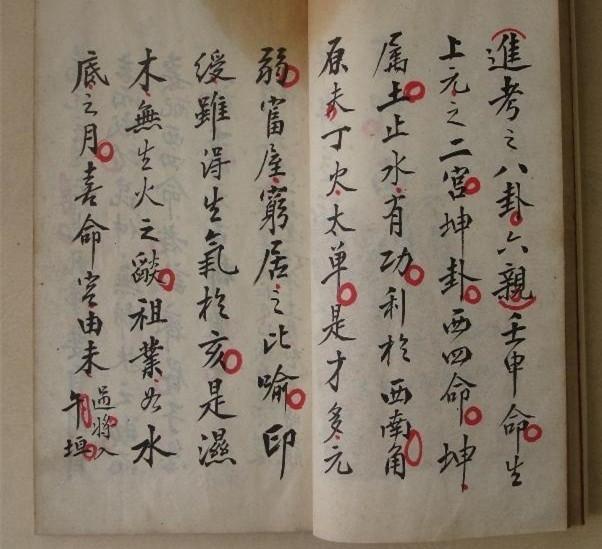 進考之八卦六親壬申命生
上元之二宮坤卦西四命坤
属土止水有功利於西南角
原夫丁火太单是才多元
弱富屋窮居之比喻印
绶雖得生氣於亥是濕
木無生火之燄祖業如水
底之月喜命宮由未過將入
午垣